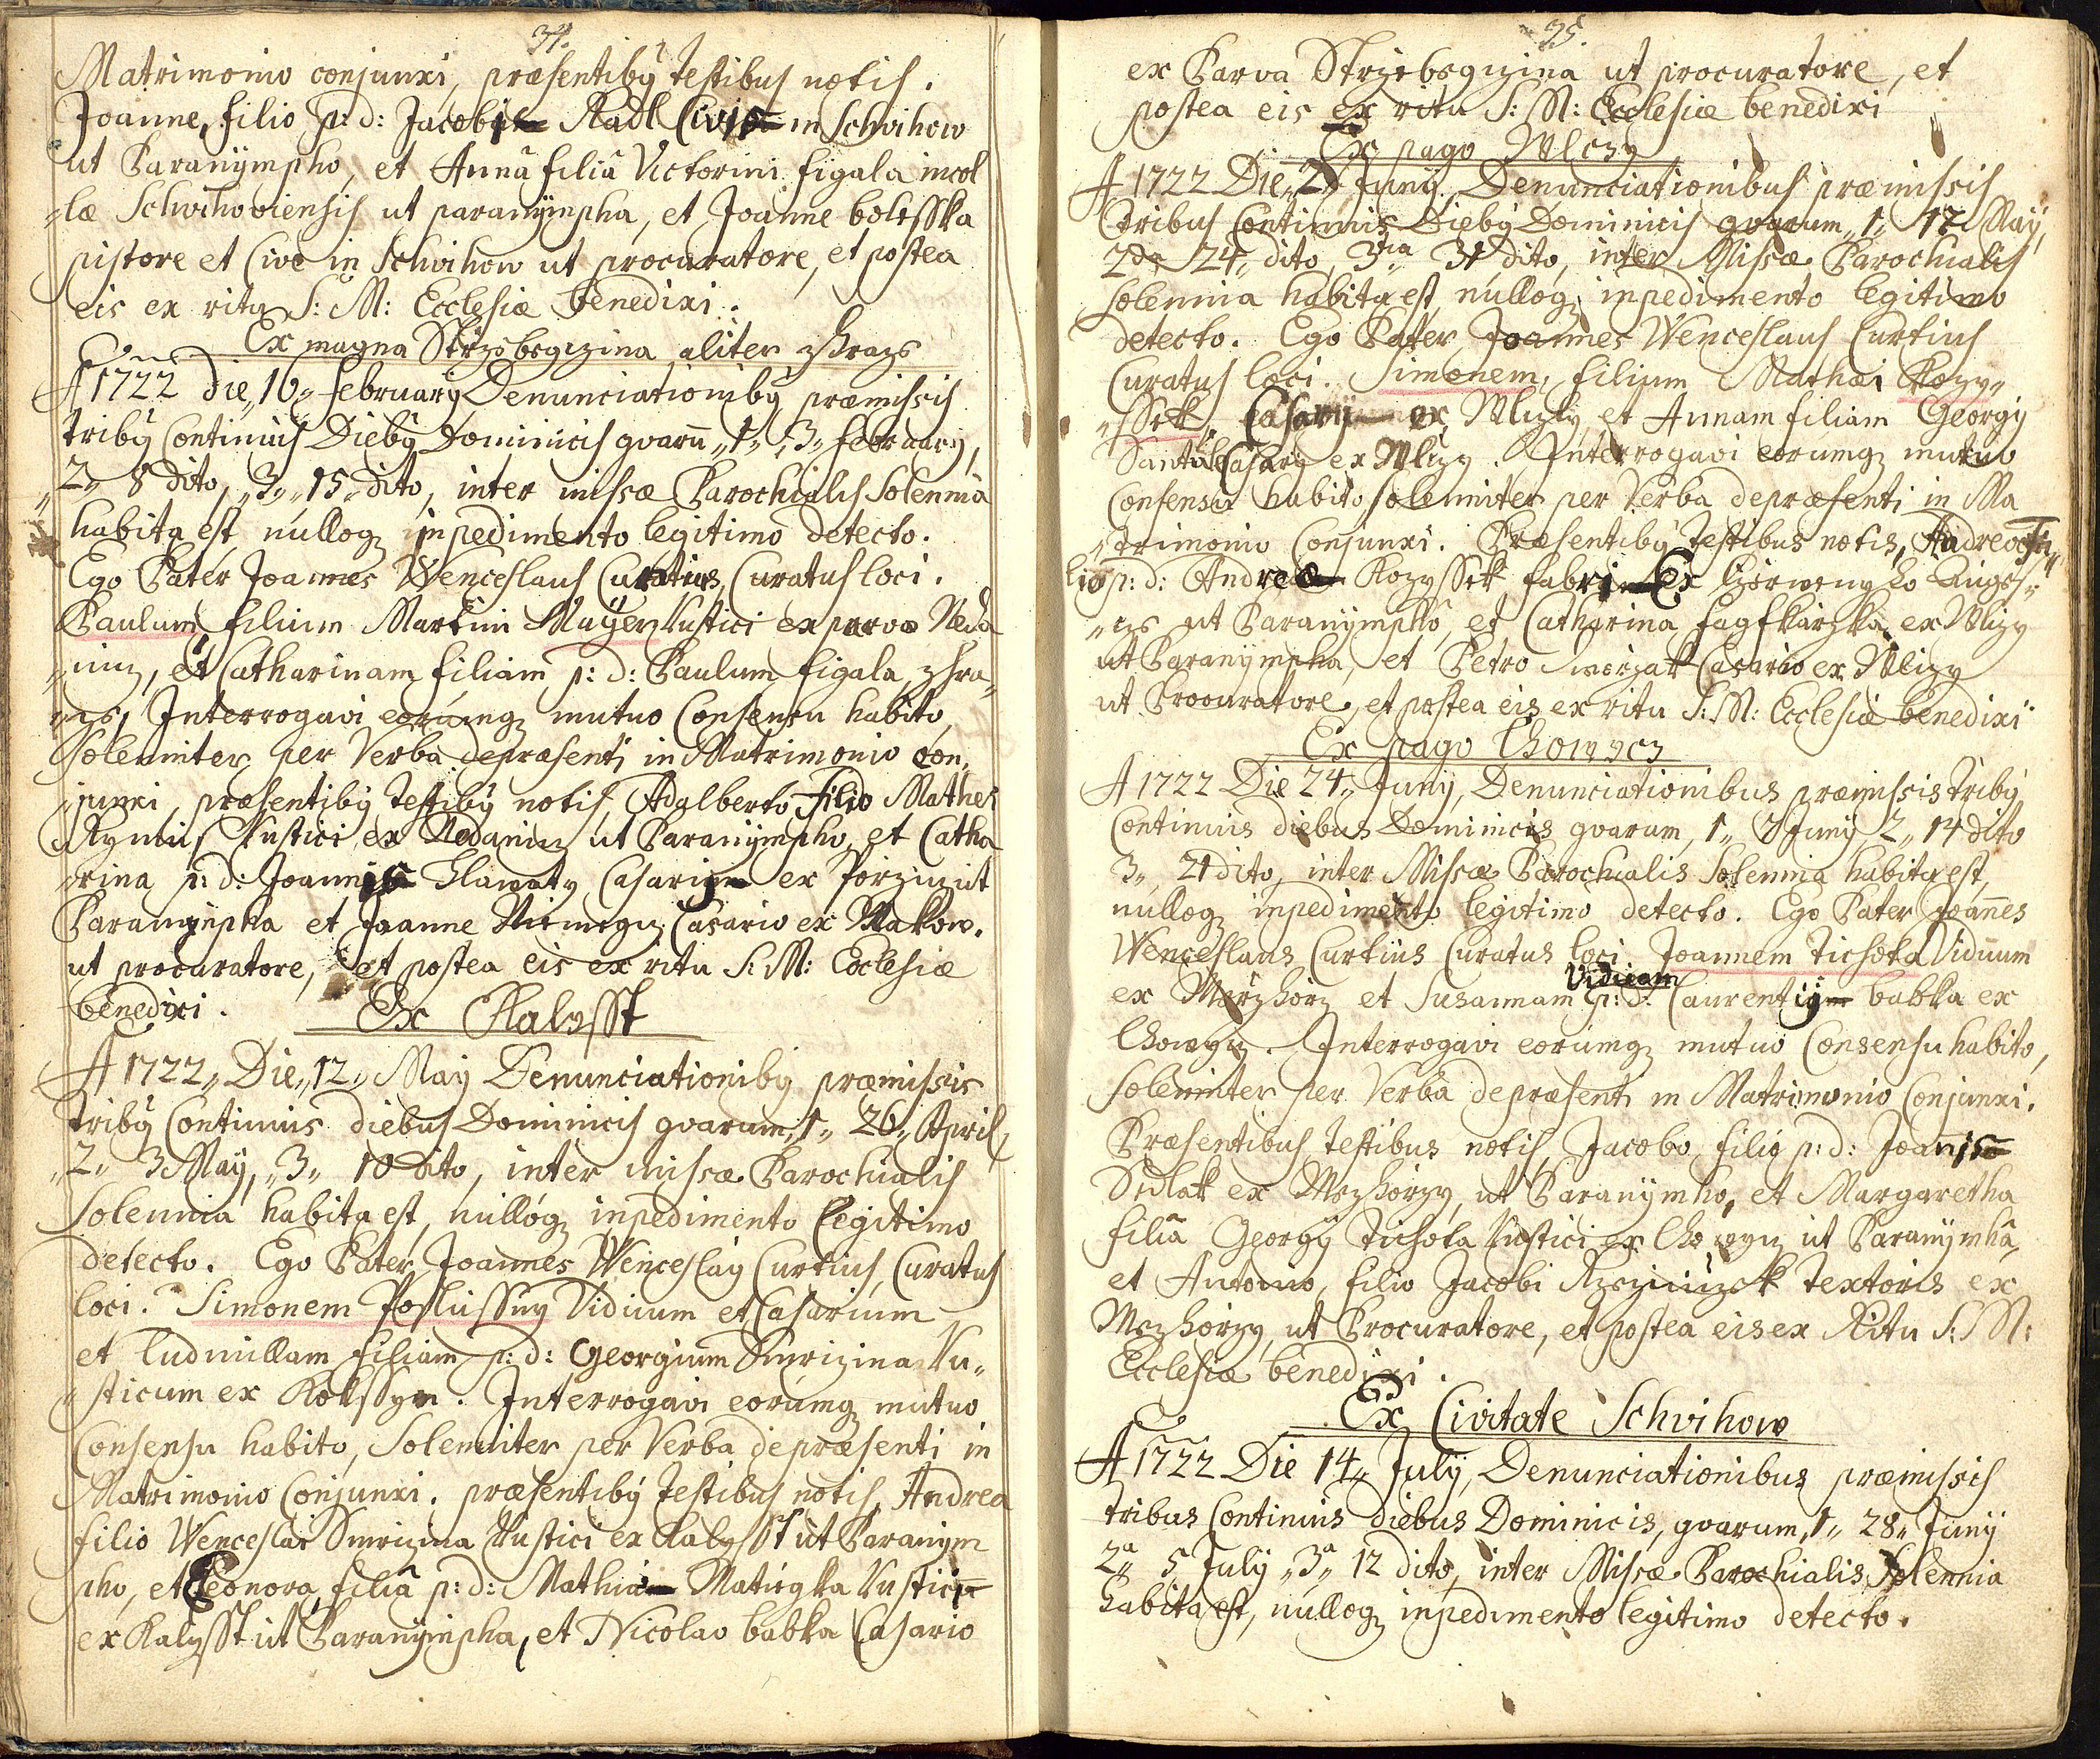 34.
Matrimonio conjunxi, præsentibỹ Testibus notis.
Joanne, filio p: d: Jacobi Radl Civis in Schvihow
ut Paranÿmpho, et Annâ filiâ Victorini figala incol
„læ Schvihoviensis ut paranÿmpha, et Joanne bolesska
pistore et Cive in Schvihow ut procuratore, et postea
eis ex ritu S: M: Ecclesiæ benedixi.
Ex magna Strzebegczina aliter zhrazs
A 1722 die „16„ februarÿ Denunciationibỹ præmissis
tribỹ Continuis Diebỹ Dominicis qvarũ „1„ „3„ februarÿ,
„2„ 8 dito, „3„ „15„ dito, inter missæ Parochialis Solennia
habita est, nulloq; inpedimento legitimo detecto.
Ego Pater Joannes Wenceslaus Curtius, Curatus loci.
Paulum, filium Martini Maÿer Rustici ex parva Neda
„nitz, et Catharinam filiam p: d: Paulum figala, zhra„
„zs, Interrogavi eorumq; mutuo Consensu habito,
Solenniter per Verba depræsenti in Matrimonio con„
„junxi, præsentibỹ Testibỹ notis, Adalberto filio Mathei
Rÿmis Rustici ex Nedanitz ut Paranÿmpho, et Catha
„rina p: d: Joannis Hlawatÿ Casarij ex Porziz ut
Paranÿmpha et Joanne Niemegcz Casario ex Makow.
ut procuratore, et postea eis ex ritu S: M: Ecclesiæ
benedixi.
Ex Kalysst
A 1722„ Die „12„ Maÿ Denunciationibỹ præmissis
tribỹ Continuis diebus Dominicis qvarum, 1„ 26„ April,
„2„ 3 Maÿ, „3„ 10 dito, inter missæ Parochialis
Solennia habita est, nulloq; inpedimento legitimo
detecto. Ego Pater Joannes Wenceslaỹ Curtius, Curatus
loci. Simonem Poslussny Viduum et Casarium
et Ludmillam filiam p: d: Georgium Smrizina Ru„
„sticum ex Kokssyn. Interrogavi eorumq; mutuo
Consensu habito, Solenniter per Verba depræsenti in
Matrimonio Conjunxi. præsentibỹ Testibus notis, Andrea
filio Wenceslai Smrizina Rustici ex Kalysst ut Paranÿm
pho, et Eleonora, filiâ p: d: Mathiæ Matiegka Rustici
ex Kalysst ut Paranÿmpha, et Nicolao babka Casario
35.
ex Parva Strzebegczina ut procuratore, et
postea eis ex ritu S: M: Ecclesiæ benedixi
Ex pago Mliczy
A 1722 Die „2 Junÿ. Denunciationibus præmissis
tribus Continuis Diebỹ Dominicis qvarum „1„ 17 Maÿ,
2da 24„ dito, 3tia 31 dito, inter Missæ Parochialis
solennia habita est, nulloq; inpedimento legitimo
detecto. Ego Pater Joannes Wenceslaus Curtius
Curatus loci. Simonem, filium Mathæi Kozy„
„ssek, Casarij ex Mlizÿ, et Annam filiam Georgÿ
Casarÿ ex Mlizy. Interrogavi eorumq; mutuo
Consensu habito solenniter per Verba depræsenti in Ma
„trimonio Conjunxi. Præsentibỹ Testibus notis, Andreo fi„
lio p: d: Andreæ Kozyssek fabri Ex Czerweny ho Augez„
„cze ut Paranÿmpho, et Catharina fagfkarzka ex Mlizy
ut Paranÿmpha, et Petro Smorzak Casario ex Mlizy
ut Procuratore, et postea eis ex ritu S: M: Ecclesiæ benedixi
Ex pago Chowycz
A 1722 Die 24„ Junÿ, Denunciationibus præmissis tribỹ
Continuis diebus Dominicis qvarum, 1„ 7 Junÿ 2„ 14 dito
3„ 21 dito, inter Missæ Parochialis Solennia habita est,
nulloq; inpedimento legitimo detecto. Ego Pater Joañes
Wenceslaus Curtius Curatus loci Joannem Tichota Viduum
Viduam
ex Mezhorz et Susannam p: d: Laurentij babka ex
Chowycz. Interrogavi eorumq; mutuo Consensu habito,
solenniter per Verba depræsenti in Matrimonio Conjunxi.
Præsentibus Testibus notis, Jacobo, filio p: d: Joañis
Sedlak ex Mezhorzy, ut Paranÿmho, et Margaretha
filia Georgÿ Tichota Rustici ex Chowycz ut Paranÿmhâ,
et Antonio, filio Jacobi Textoris ex
Mezhorzy, ut Procuratore, et postea eis ex Ritu S: M:
Ecclesiæ benedixi.
Ex Civitate Schvihow
A 1722 Die 14„ Julÿ, Denunciationibus præmissis
tribus Continuis diebus Dominicis, qvarum, 1„ 28„ Junÿ
2a„ 5 Julÿ „3a„ 12 dito, inter Missæ Parochialis Solennia
habita est, nulloq; inpedimento legitimo detecto.